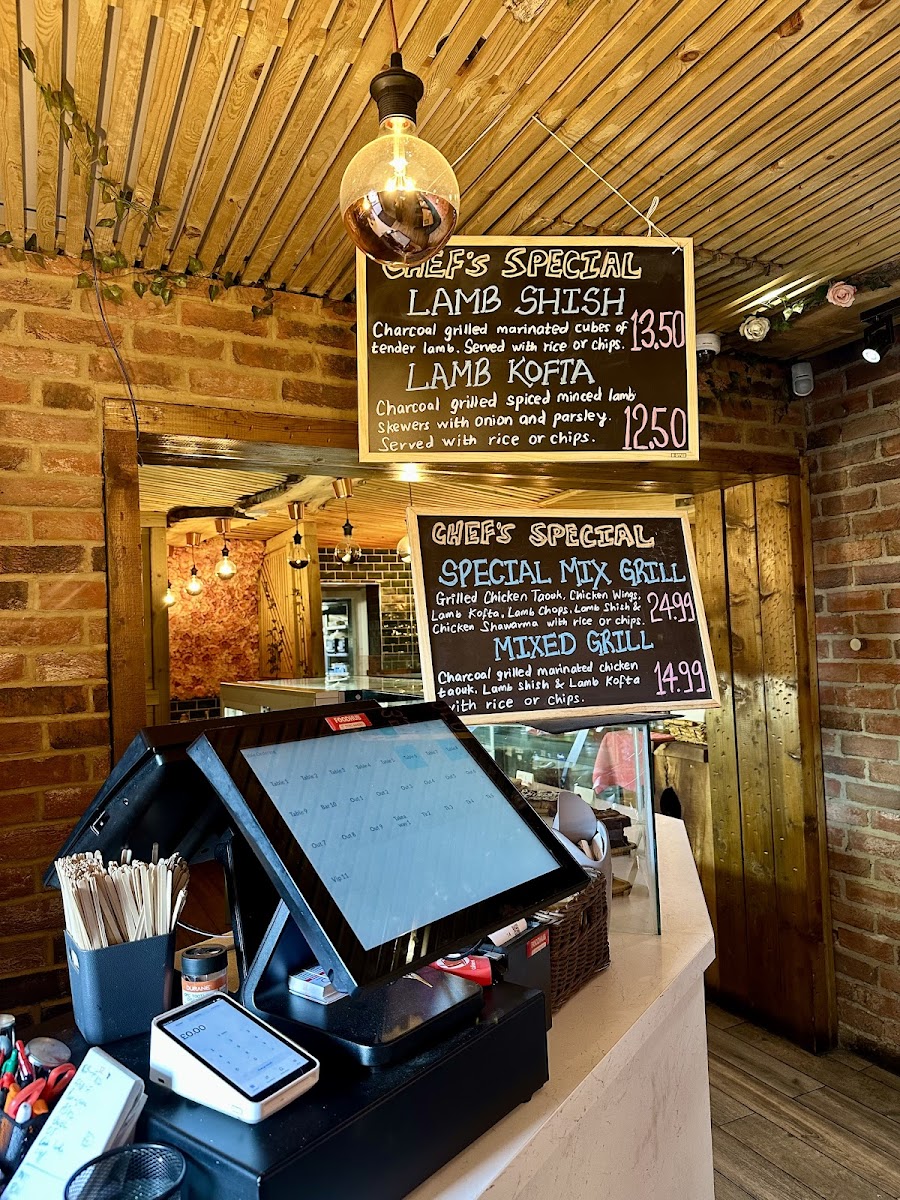 CHEF'S SPECIAL
LAMB SHISH
Charcoal grilled marinated cubes of
tender lamb. Served with rice or chips.
13.50
LAMB KOFTA
Charcoal grilled spiced minced lamb
skewers with onion and parsley.
Served with rice or chips.
12.50
CHEF'S SPECIAL
SPECIAL MIX GRILL
Grilled Chicken Taouk, Chicken Wings,
Lamb Kofta, Lamb Chops, Lamb Shish &
Chicken Shawarma with rice or chips.
24.99
MIXED GRILL
Charcoal grilled marinated chicken
taouk, Lamb shish & Lamb Kofta
with rice or chips.
14.99
FOODHUB
Table 1 Table 2 Table 3 Table 4 Table 5
Table 9 Bar 10 Out 1 Out 2 Out 3 Out 4 Out 5 Out 6
Out 7 Out 8 Out 9
Vip 11
£0.00